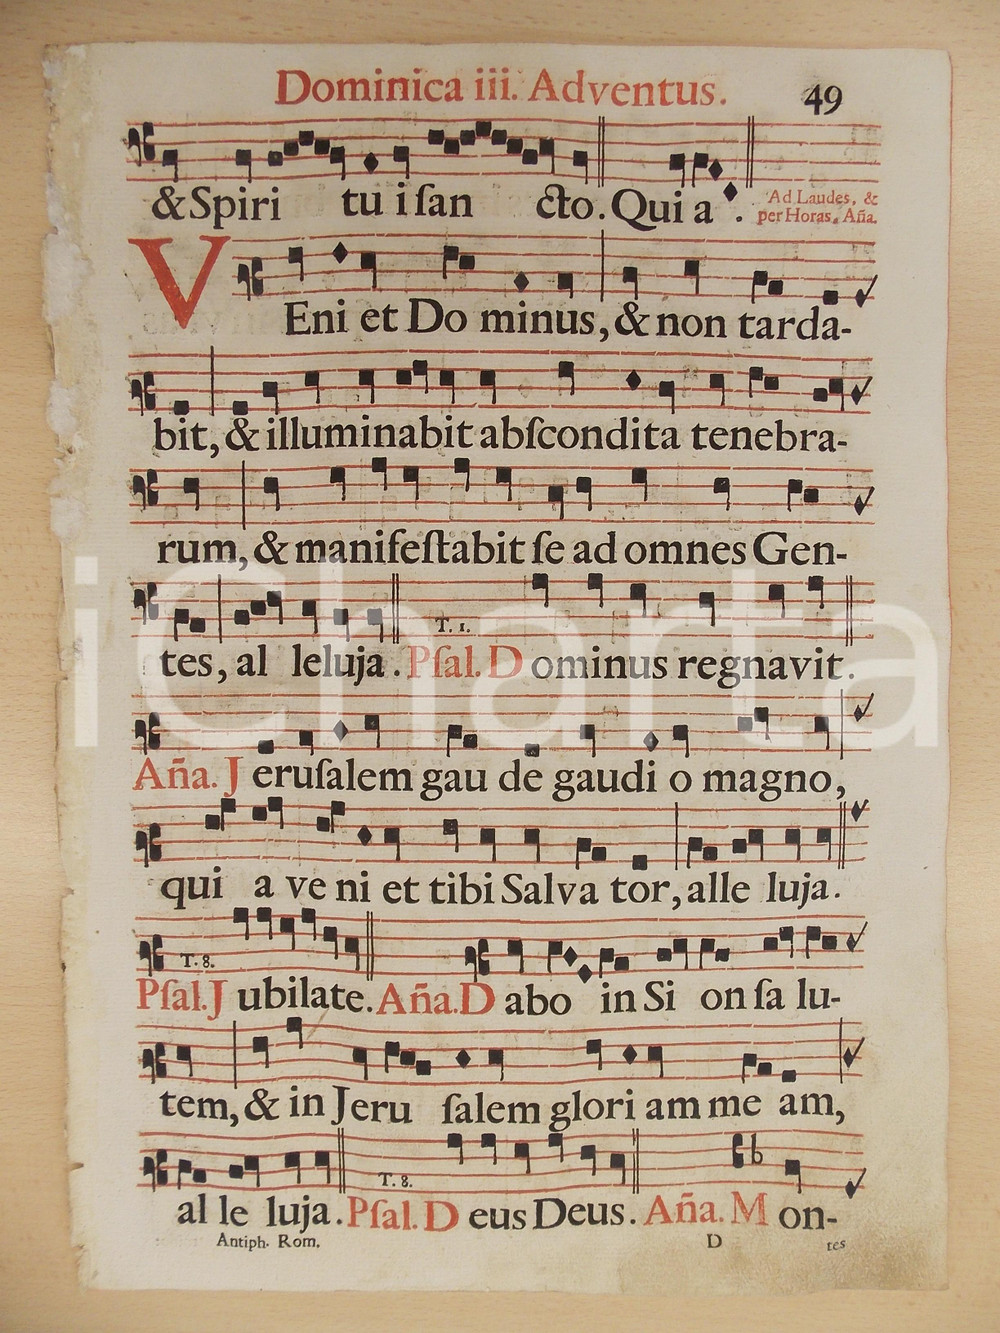 Dominica iii. Adventus. 49
& Spiri tu i ſan cto. Qui a . Ad Laudes, &
per Horas, Aña.
VEni et Do minus, & non tarda-
bit, & illuminabit abſcondita tenebra-
rum, & manifeſtabit ſe ad omnes Gen-
T. 1.
tes, al leluja. Pſal. Dominus regnavit.
Aña. Jeruſalem gau de gaudi o magno,
qui a ve ni et tibi Salva tor, alle luja.
T. 8.
Pſal. Jubilate. Aña. Dabo in Si on ſa lu-
tem, & in Jeru ſalem glori am me am,
T. 8.
al le luja. Pſal. Deus Deus. Aña. Mon-
Antiph. Rom. D tes
iCharta